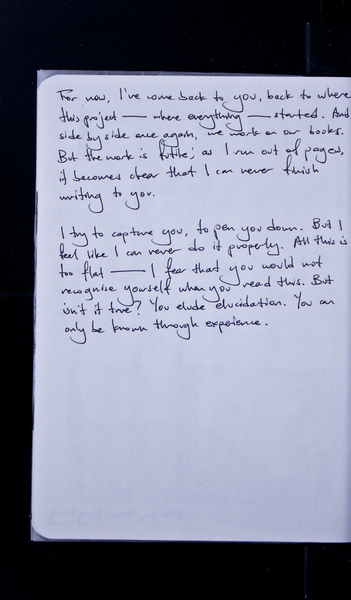 For now, I've come back to you, back to where
this project — where everything — started. And
side by side once again, we work on our books.
But the work is futile; as I run out of pages,
it becomes clear that I can never finish
writing to you.
I try to capture you, to pen you down. But I
feel like I can never do it properly. All this is
too flat — I fear that you would not
recognise yourself when you read this. But
isn't it true? You elude elucidation. You can
only be known through experience.